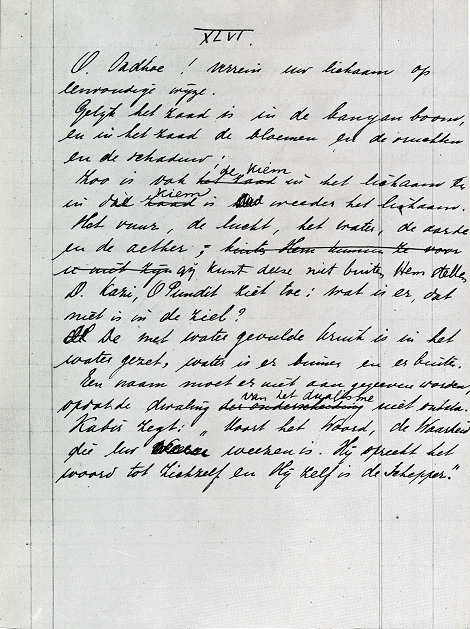 XLVI.
O. Sadhoe! verrein uw lichaam op
eenvoudige wyze.
Gelyk het zaad is in de banyan boom,
en in het zaad de bloemen en de vruchten
en de schaduw!
Zoo is ook het zaad de kiem in het lichaam &
in die zaad kiem is weeder het lichaam.
Het vuur, de lucht, het water, de aarde
en de aether; buiten Hem kunnen ze voor
u niet zyn gij kunt deese niet buiten Hem stellen
O. Kazi, O Pundit ziet toe: wat is er, dat
niet is in de ziel?
De met water gevulde kruik is in het
water gezet, water is er binnen en er buiten.
Een naam moet er niet aan gegeven worden,
opdat de dwaling der onderscheiding van het dualisme niet ontsta.
Kabir zegt: „Hoort het Woord, de Waarheid
die Uw weezen is. Hij spreekt het
woord tot Zichzelf en Hij zelf is de Schepper."